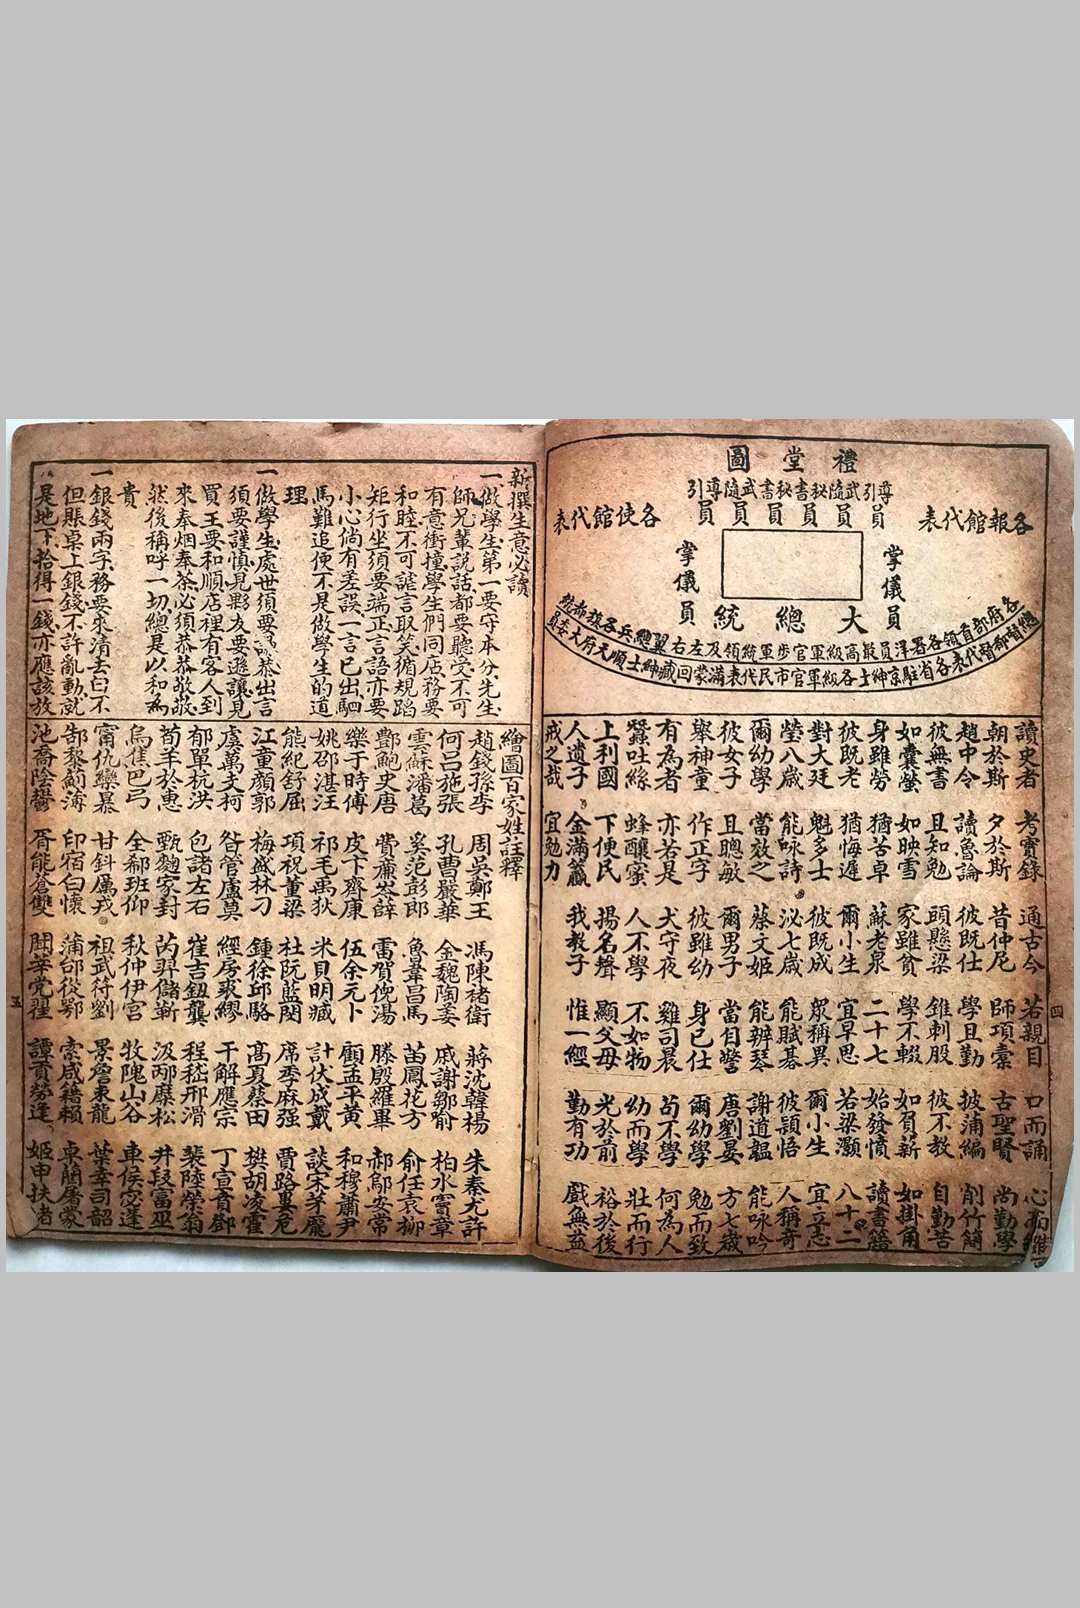 禮堂圖
引導員 隨武員 秘書員 秘書員 隨武員 引導員
各報館代表
各使館代表
掌儀員
掌儀員
大總統
各府部首領各署洋員最高級軍官步軍統領及左右翼總兵各旗都統
總督都督代表各省駐京紳士各級軍官市民代表滿蒙回藏紳士順天府大委員
讀史者 考實錄 通古今 若親目 口而誦 心而維
朝於斯 夕於斯 昔仲尼 師項橐 古聖賢 尚勤學
趙中令 讀魯論 彼既仕 學且勤 披蒲編 削竹簡
彼無書 且知勉 頭懸梁 錐刺股 彼不教 自勤苦
如囊螢 如映雪 家雖貧 學不輟 如負薪 如掛角
身雖勞 猶苦卓 蘇老泉 二十七 始發憤 讀書籍
彼既老 猶悔遲 爾小生 宜早思 若梁灝 八十二
對大廷 魁多士 彼既成 眾稱異 爾小生 宜立志
瑩八歲 能咏詩 泌七歲 能賦碁 彼頴悟 人稱奇
爾幼學 當效之 蔡文姬 能辨琴 謝道韞 能咏吟
彼女子 且聰敏 爾男子 當自警 唐劉晏 方七歲
舉神童 作正字 彼雖幼 身已仕 爾幼學 勉而致
有為者 亦若是 犬守夜 雞司晨 苟不學 何為人
蠶吐絲 蜂釀蜜 人不學 不如物 幼而學 壯而行
上利國 下便民 揚名聲 顯父母 光於前 裕於後
人遺子 金滿籯 我教子 惟一經 勤有功 戲無益
戒之哉 宜勉力
四
新撰生意必讀
一做學生第一要守本分先生
師兄輩說話都要聽受不可
有意衝撞學生們同店務要
和睦不可謊言取笑循規蹈
矩行坐須要端正言語亦要
小心倘有差誤一言已出駟
馬難追便不是做學生的道
理
一做學生處世須要謙恭出言
須要謹慎見夥友要遜讓見
買主要和順店裡有客人到
來奉烟奉茶必須恭恭敬敬
然後稱呼一切總是以和為
貴
一銀錢兩字務要來清去白不
但賬桌上銀錢不許亂動就
是地下拾得一錢亦應該放
繪圖百家姓註釋
趙錢孫李 周吳鄭王 馮陳褚衛 蔣沈韓楊 朱秦尤許
何呂施張 孔曹嚴華 金魏陶姜 戚謝鄒喻 柏水竇章
雲蘇潘葛 奚范彭郎 魯韋昌馬 苗鳳花方 俞任袁柳
酆鮑史唐 費廉岑薛 雷賀倪湯 滕殷羅畢 郝鄔安常
樂于時傅 皮卞齊康 伍余元卜 顧孟平黃 和穆蕭尹
姚邵湛汪 祁毛禹狄 米貝明臧 計伏成戴 談宋茅龐
熊紀舒屈 項祝董梁 杜阮藍閔 席季麻强 賈路婁危
江童顏郭 梅盛林刁 鍾徐邱駱 高夏蔡田 樊胡凌霍
虞萬支柯 昝管盧莫 經房裘繆 干解應宗 丁宣賁鄧
郁單杭洪 包諸左石 崔吉鈕龔 程嵇邢滑 裴陸榮翁
荀羊於惠 甄麴家封 芮羿儲靳 汲邴糜松 井段富巫
烏焦巴弓 全郗班仰 秋仲伊宮 牧隗山谷 車侯宓蓬
甯仇欒暴 甘鈄厲戎 祖武符劉 景詹束龍 葉幸司韶
郜黎薊薄 印宿白懷 蒲邰從鄂 索咸籍賴 卓藺屠蒙
池喬陰鬱 胥能蒼雙 聞莘党翟 譚貢勞逄 姬申扶堵
五